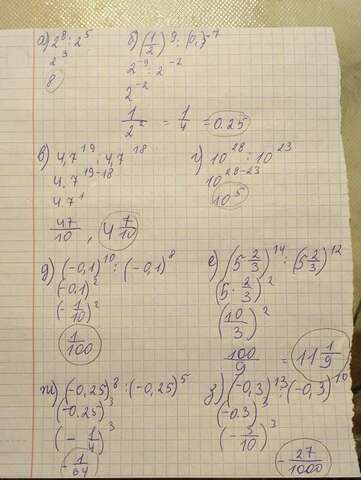 а) 2⁸ : 2⁵
2³
8
б) (1/2)⁹ : (0,)⁻⁷
2⁻⁹ : 2⁻²
2⁻²
1/2² = 1/4 = 0.25
в) 4,7¹⁹ : 4,7¹⁸
4.7¹⁹⁻¹⁸
4.7¹
47/10 , 4 7/10
г) 10²⁸ : 10²³
10²⁸⁻²³
10⁵
д) (-0,1)¹⁰ : (-0,1)⁸
(-0,1)²
(-1/10)²
1/100
е) (5 2/3)¹⁴ : (5 2/3)¹²
(5 · 2/3)²
(10/3)²
100/9 = 11 1/9
ж) (-0,25)⁸ : (-0,25)⁵
(-0,25)³
(-1/4)³
-1/64
з) (-0,3)¹³ : (-0,3)¹⁰
(-0.3)³
(-3/10)³
-27/1000